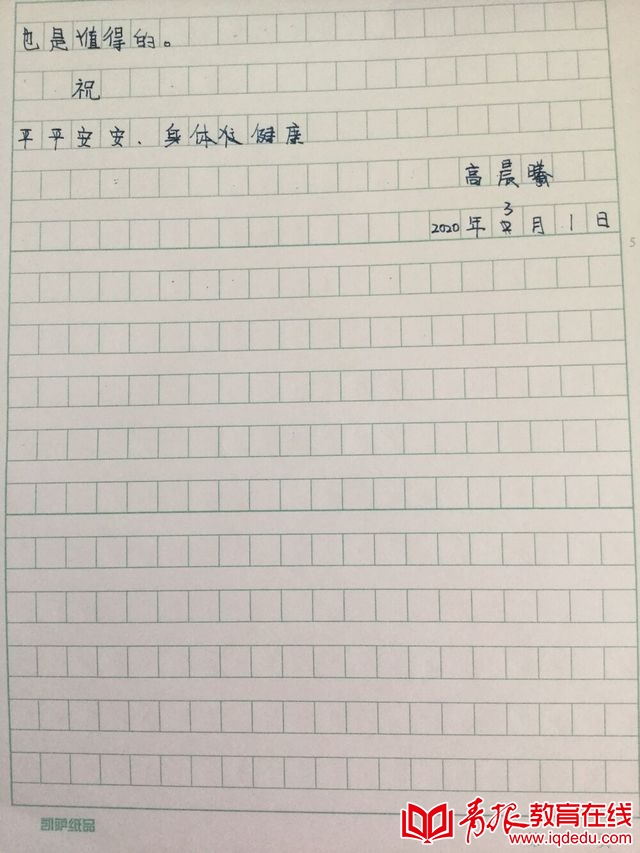 也是值得的。
祝
平平安安、身体健康
高晨曦
2020年3月1日
5
凯萨纸品
青报教育在线
www.iqdedu.com